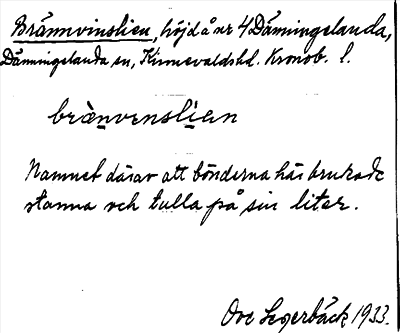 Brännvinslien, höjd å nr 4 Dänningelanda,
Dänningelanda sn, Kinnevaldshd. Kronob. l.
brànvenslìen
Namnet därav att bönderna här brukade
stanna och tulla på sin liter.
Ove Segerbäck 1933.